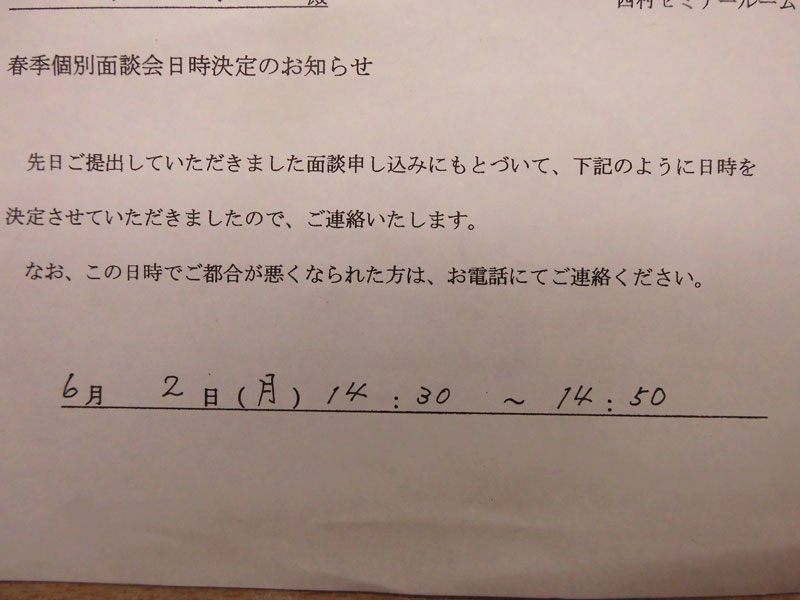 殿
西村セミナールーム
春季個別面談会日時決定のお知らせ
先日ご提出していただきました面談申し込みにもとづいて、下記のように日時を
決定させていただきましたので、ご連絡いたします。
なお、この日時でご都合が悪くなられた方は、お電話にてご連絡ください。
6月 2日(月) 14:30 ~ 14:50